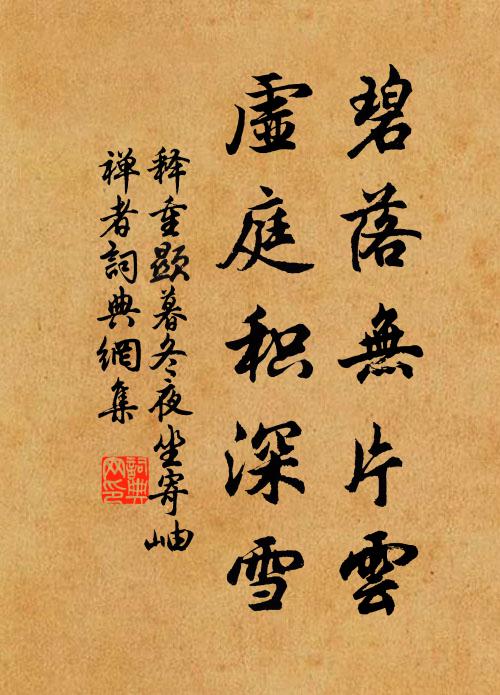 碧落無片雲
虛庭积深雪
释重顯暮冬夜坐寄岫
禅者詞典網集
詞典网印